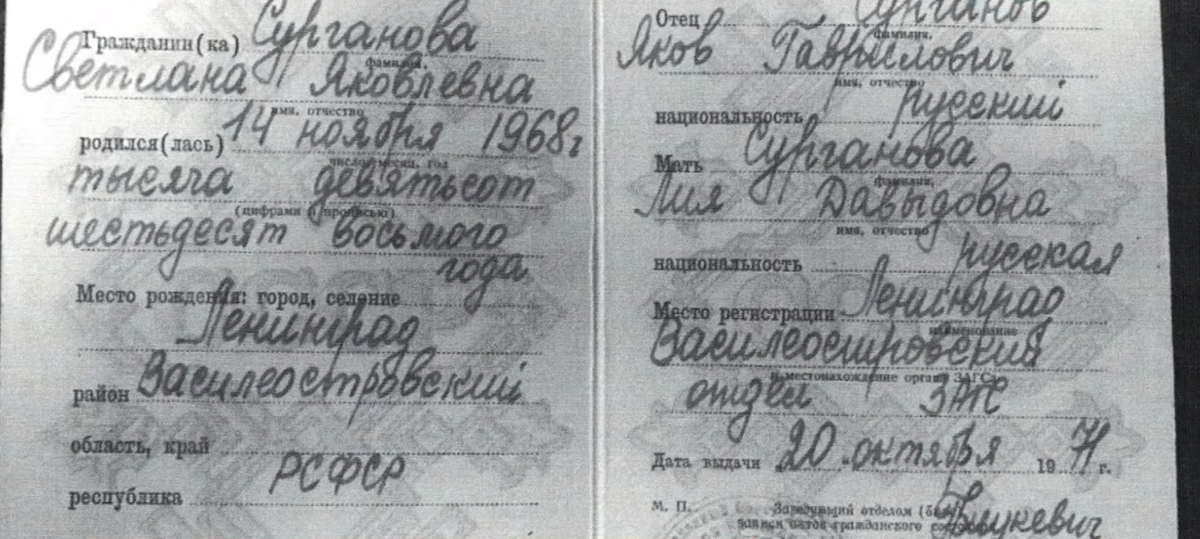 Гражданин(ка) Сурганова
фамилия,
Светлана Яковлевна
имя, отчество
родился(лась) 14 ноября 1968г
число, месяц, год
тысяча девятьсот
(цифрами и прописью)
шестьдесят восьмого
года
Место рождения: город, селение
Ленинград
район Василеостровский
область, край
республика РСФСР
Отец Сурганов
фамилия,
Яков Гавриилович
имя, отчество
национальность русский
Мать Сурганова
фамилия,
Лия Давыдовна
имя, отчество
национальность русская
Место регистрации Ленинград
наименование
Василеостровский
и местонахождение органа ЗАГСа
отдел ЗАГС
Дата выдачи 20 октября 1971 г.
М. П.
Заведующий отделом (бюро)
записи актов гражданского состояния